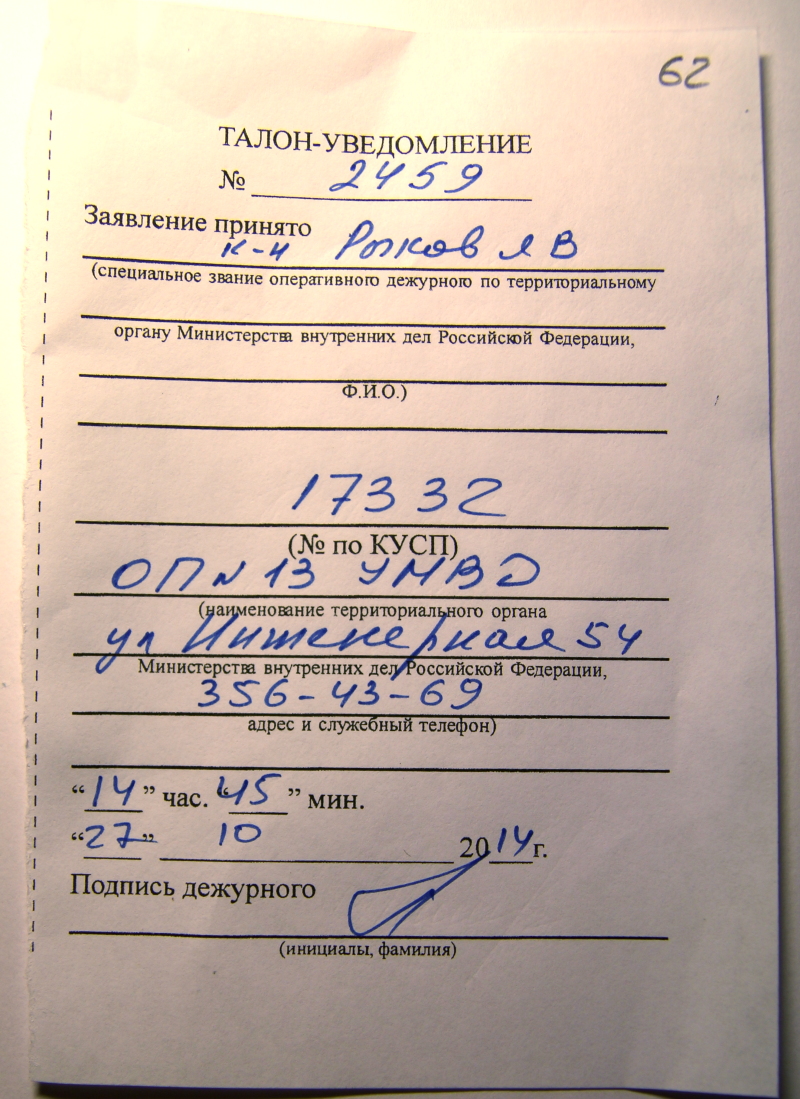 62
ТАЛОН-УВЕДОМЛЕНИЕ
№ 2459
Заявление принято
к-н Рыков Я В
(специальное звание оперативного дежурного по территориальному
органу Министерства внутренних дел Российской Федерации,
Ф.И.О.)
17332
(№ по КУСП)
ОП № 13 УМВД
(наименование территориального органа
ул Инженерная 54
Министерства внутренних дел Российской Федерации,
356-43-69
адрес и служебный телефон)
“14” час. “45” мин.
“27” 10 2014г.
Подпись дежурного
(инициалы, фамилия)